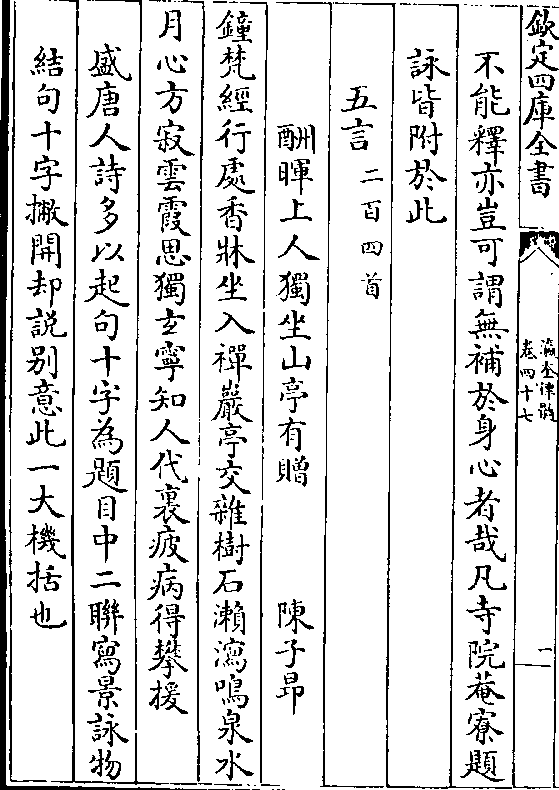 欽定四庫全書
瀛奎律髓
卷四十七
二
不能釋亦豈可謂無補於身心者哉凡寺院菴寮題
詠皆附於此
五言二百四首
酬暉上人獨坐山亭有贈 陳子昂
鐘梵經行處香牀坐入禪巖亭交雜樹石瀨瀉鳴泉水
月心方寂雲霞思獨玄寧知人代裏疲病得攀援
盛唐人詩多以起句十字為題目中二聯寫景詠物
結句十字撇開却說别意此一大機括也